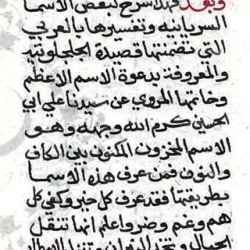 وبعد فهذا شرح لبعض الاسما
السريانيه وتفسيرها بالعربي
التي تضمنتها قصيدة الجلجلوتيه
والمعروفة بدعوة الاسم الاعظم
وخاتمتها المروي عن سيدنا علي ابي
الحسين كرم الله وجهه وهو
الاسم المخزون المكنون بين الكاف
والنون فمن عرف هذه الاسما
بطريقتها فقد عرف كل خير وكفي كل
هم وغم وضر واعلم انها تنقل